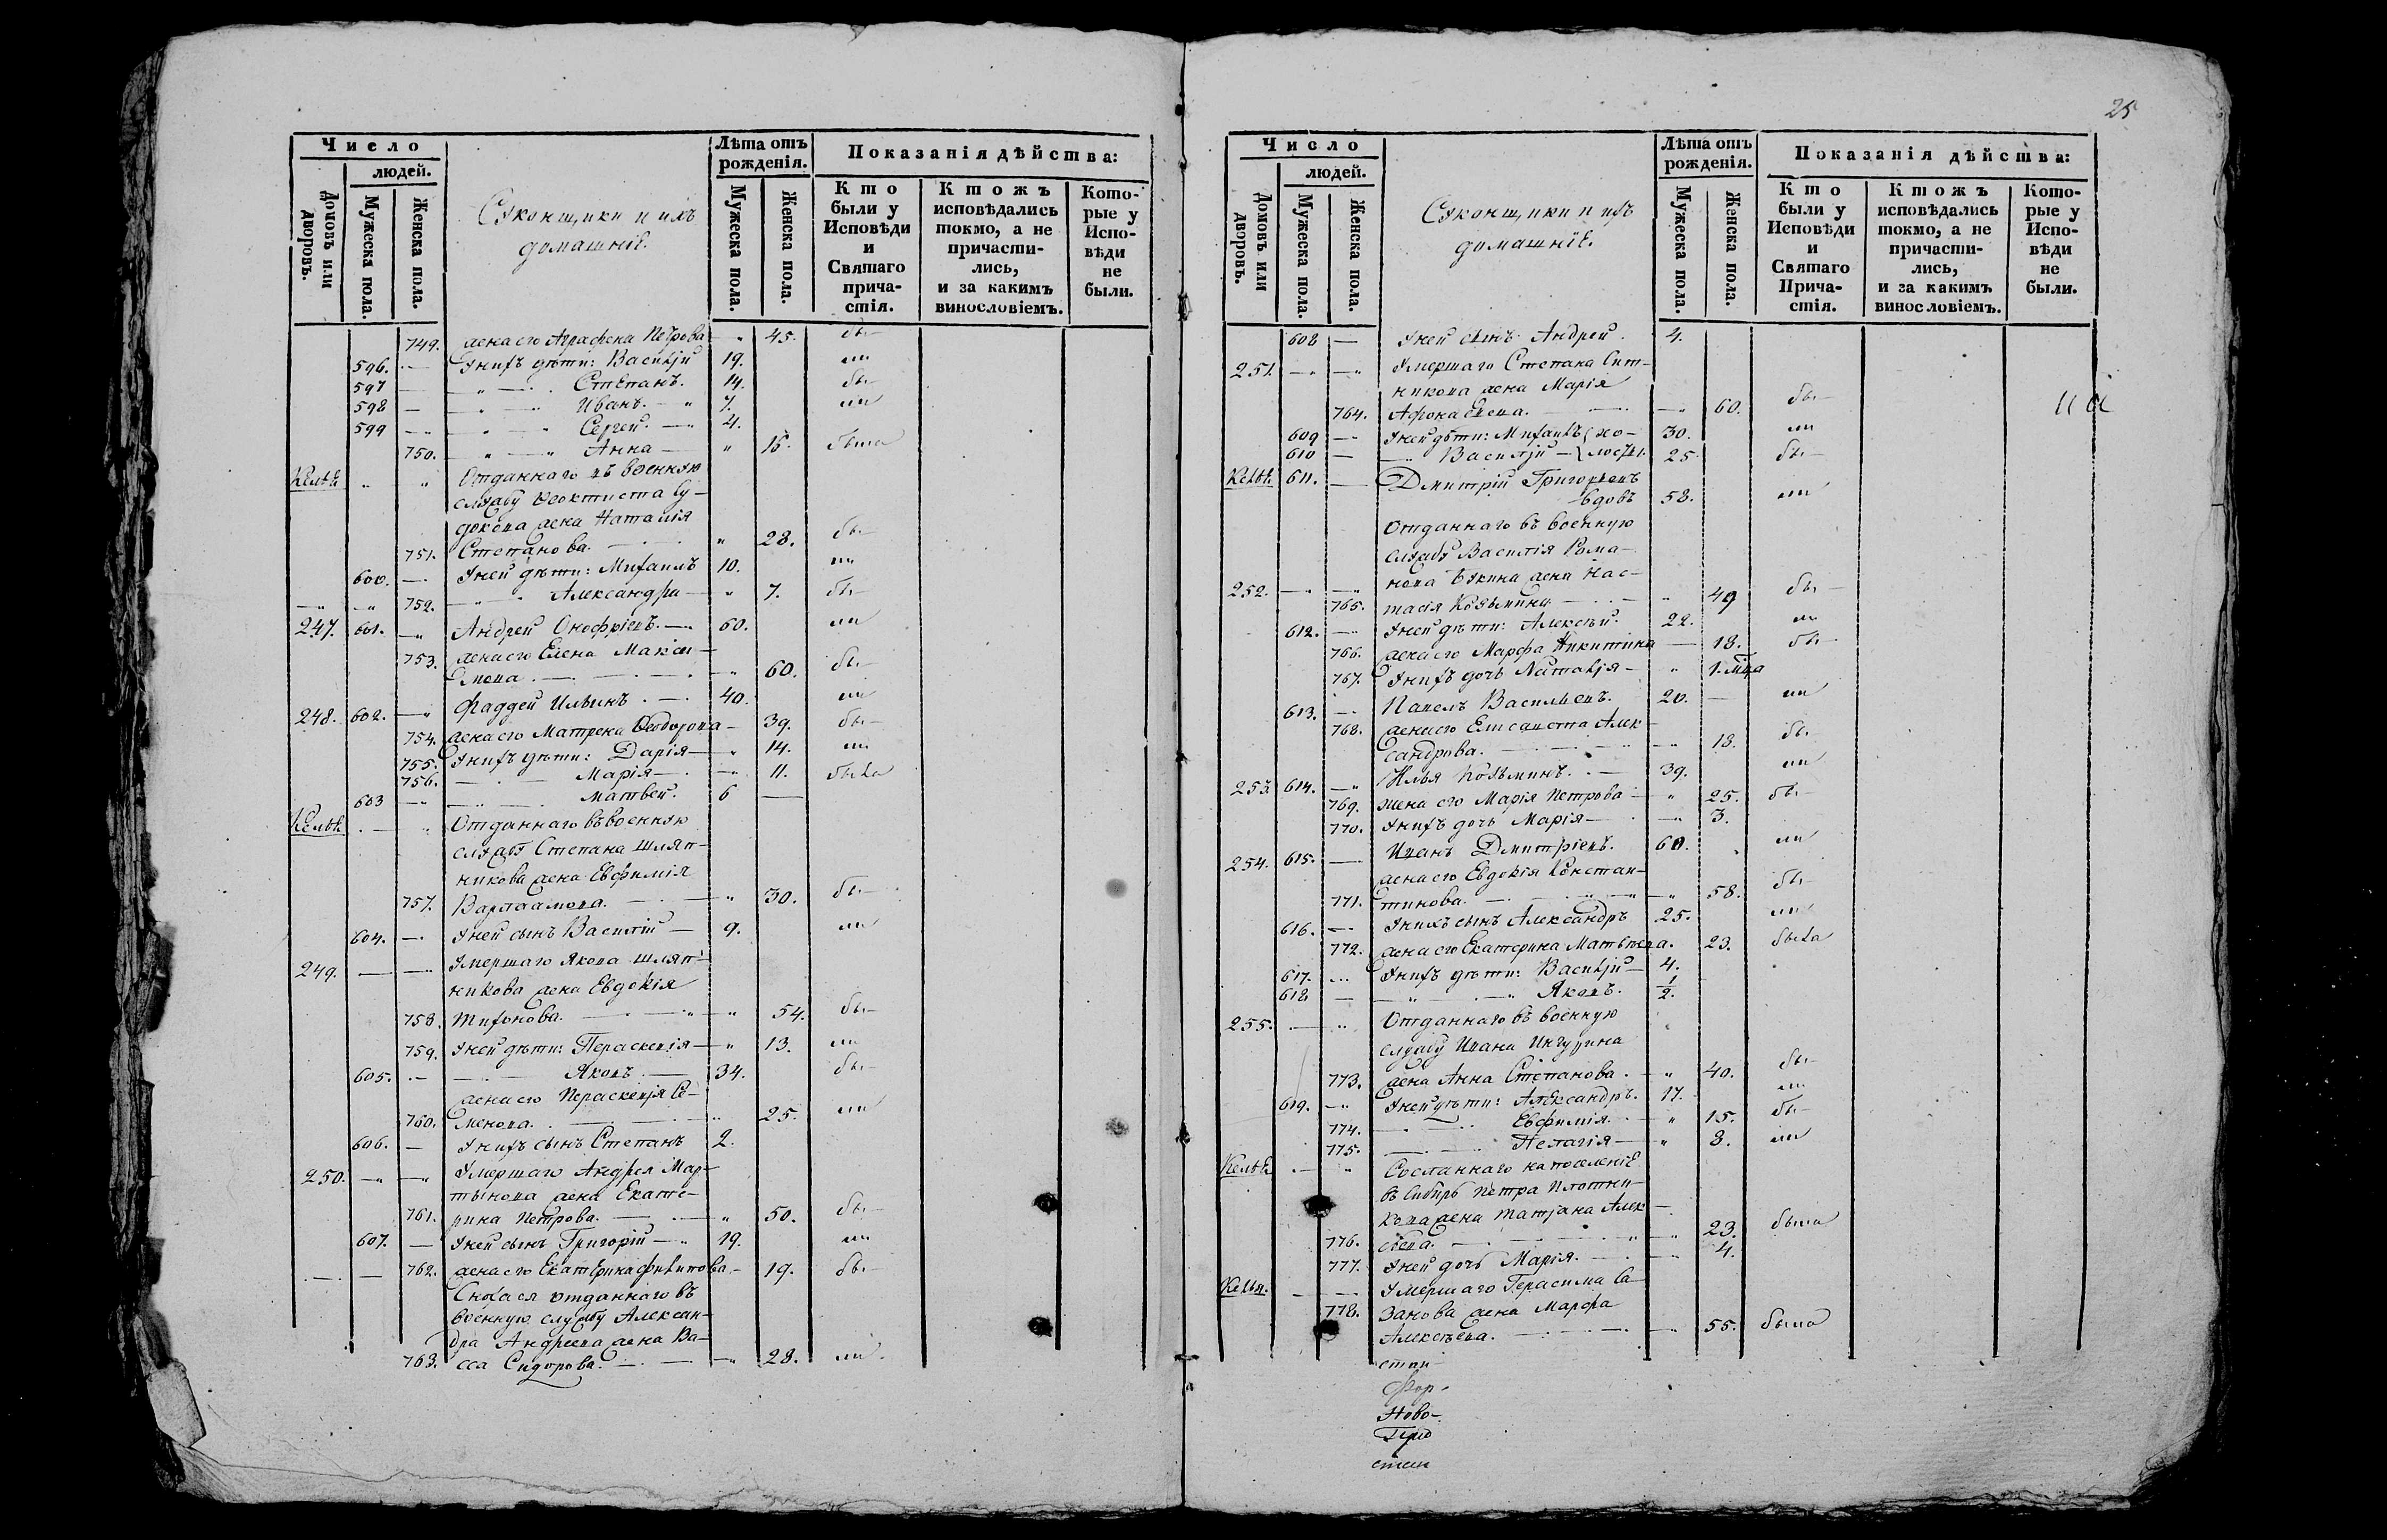 25
Число
людей.
Домовъ или дворовъ.
Мужеска пола.
Женска пола.
Суконщики и ихъ
домашніе.
Лѣта отъ
рожденія.
Мужеска пола.
Женска пола.
Показанія дѣйства:
Кто
были у
Исповѣди
и
Святаго
прича-
стія.
Ктожъ
исповѣдались
токмо, а не
причасти-
лись,
и за какимъ
винословіемъ.
Кото-
рые у
Испо-
вѣди
не
были.
749. жена его Аграфена Петрова 45. бы-
596. У нихъ дѣти: Василій 19. ли
597 Степанъ. 14. бы-
598 Иванъ. 7. ли
599 Сергей. 4.
750. Анна 15. была
Кельѣ Отданнаго въ военную
службу Феоктиста Су-
докова жена Наталія
751. Степанова. 28. бы-
600. У ней дѣти: Михаилъ 10. ли
752. Александра 7. бы-
247. 601. Андрей Онофріевъ. 60. ли
753. жена его Елена Макси-
мова. 60. бы-
248. 602. Фаддей Ильинъ. 40. ли
754. жена его Матрена Феодорова 39. бы-
755. У нихъ дѣти: Дарія 14. ли
756. Марія 11. была
603 Матвей. 6
Кельѣ Отданнаго въ военную
службу Степана Шляп-
никова жена Евфимія
757. Варлаамова. 30. бы-
604. У ней сынъ Василій 9. ли
249. Умершаго Якова Шляп-
никова жена Евдокія
758. Тихонова. 54. бы-
759. У ней дѣти: Параскевія 13. ли
605. Яковъ 34. бы-
жена его Параскевія Се-
760. менова. 25. ли
606. У нихъ сынъ Степанъ 2.
250. Умершаго Андрея Мар-
тынова жена Екате-
761. рина Петрова. 50. бы-
607. У ней сынъ Григорій 19. ли
762. жена его Екатерина Филипова 19. бы-
Сноха ея отданнаго въ
военную службу Алексан-
дра Андреева жена Ва-
763. сса Сидорова. 28. ли
Число
людей.
Домовъ или дворовъ.
Мужеска пола.
Женска пола.
Суконщики и ихъ
домашніе.
Лѣта отъ
рожденія.
Мужеска пола.
Женска пола.
Показанія дѣйства:
Кто
были у
Исповѣди
и
Святаго
Прича-
стія.
Ктожъ
исповѣдались
токмо, а не
причасти-
лись,
и за какимъ
винословіемъ.
Кото-
рые у
Испо-
вѣди
не
были.
608 У ней сынъ Андрей. 4.
251. Умершаго Степана Сит-
никова жена Марія
764. Афонасьева. 60. бы-
609 У ней дѣти: Михаилъ хо- 30. ли
610 Василій лосты. 25. бы-
Кельѣ 611. Дмитрій Григорьевъ
вдовъ 58. ли
Отданнаго въ военную
службу Василія Рома-
252. нова жена Нас-
765. тасія Козьмина 49 бы-
612. У ней дѣти: Алексѣй. 22. ли
766. жена его Марфа Никитина 18. бы-
767. У нихъ дочь Наталія 1. мца
613. Павелъ Васильевъ. 20. ли
768. жена его Елисавета Алек-
сандрова. 18. бы-
253. 614. Илья Козьминъ. 39. ли
769. жена его Марія Петрова 25. бы-
770. У нихъ дочь Марія 3.
254. 615. Иванъ Дмитріевъ. 60. ли
жена его Евдокія Констан-
771. тинова. 58. бы-
616. У нихъ сынъ Александръ 25. ли
772. жена его Екатерина Матвѣева. 23. была
617. У нихъ дѣти: Василій 4.
618 Яковъ. 1/2.
255. Отданнаго въ военную
службу Ивана
773. жена Анна Степанова. 40. бы-
619. У ней дѣти: Александръ. 17. ли
774. Евфимія. 15. бы-
775. Пелагія 8. ли
Кельѣ Сосланнаго на поселеніе
въ Сибирь Петра Плотни-
кова жена Татіана Алек-
776. сѣева. 23. была
777. У ней дочь Марія. 4.
Кельи. Умершаго Герасима Са-
778. занова жена Марфа
Алексѣева. 55. была
Ново-